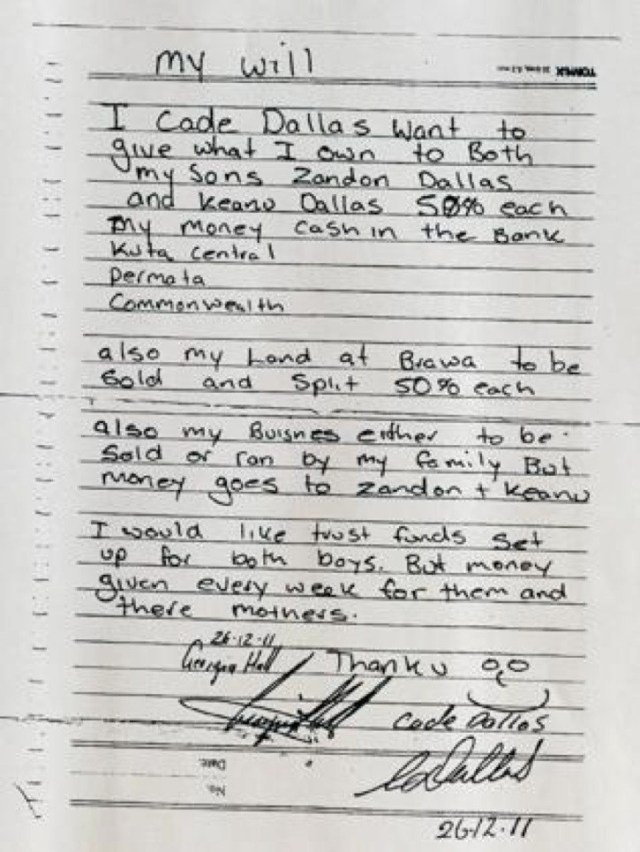 my will
TOMMAX
I Cade Dallas want to
give what I own to Both
my Sons Zandon Dallas
and Keanu Dallas 50% each
My money cash in the Bank
Kuta Central
Permata
Commonwealth
also my Land at Brawa to be
Sold and Split 50% each
also my Buisnes either to be
Sold or ran by my family But
money goes to Zandon + Keanu
I would like trust funds set
up for both boys. But money
given every week for them and
there mothers.
26.12.11
Georgia Hall
Thank u
Cade Dallas
Date:
No.
26.12.11